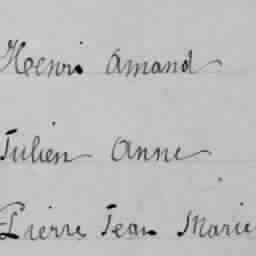 Henri Amand
Julien Anne
Pierre Jean Marie